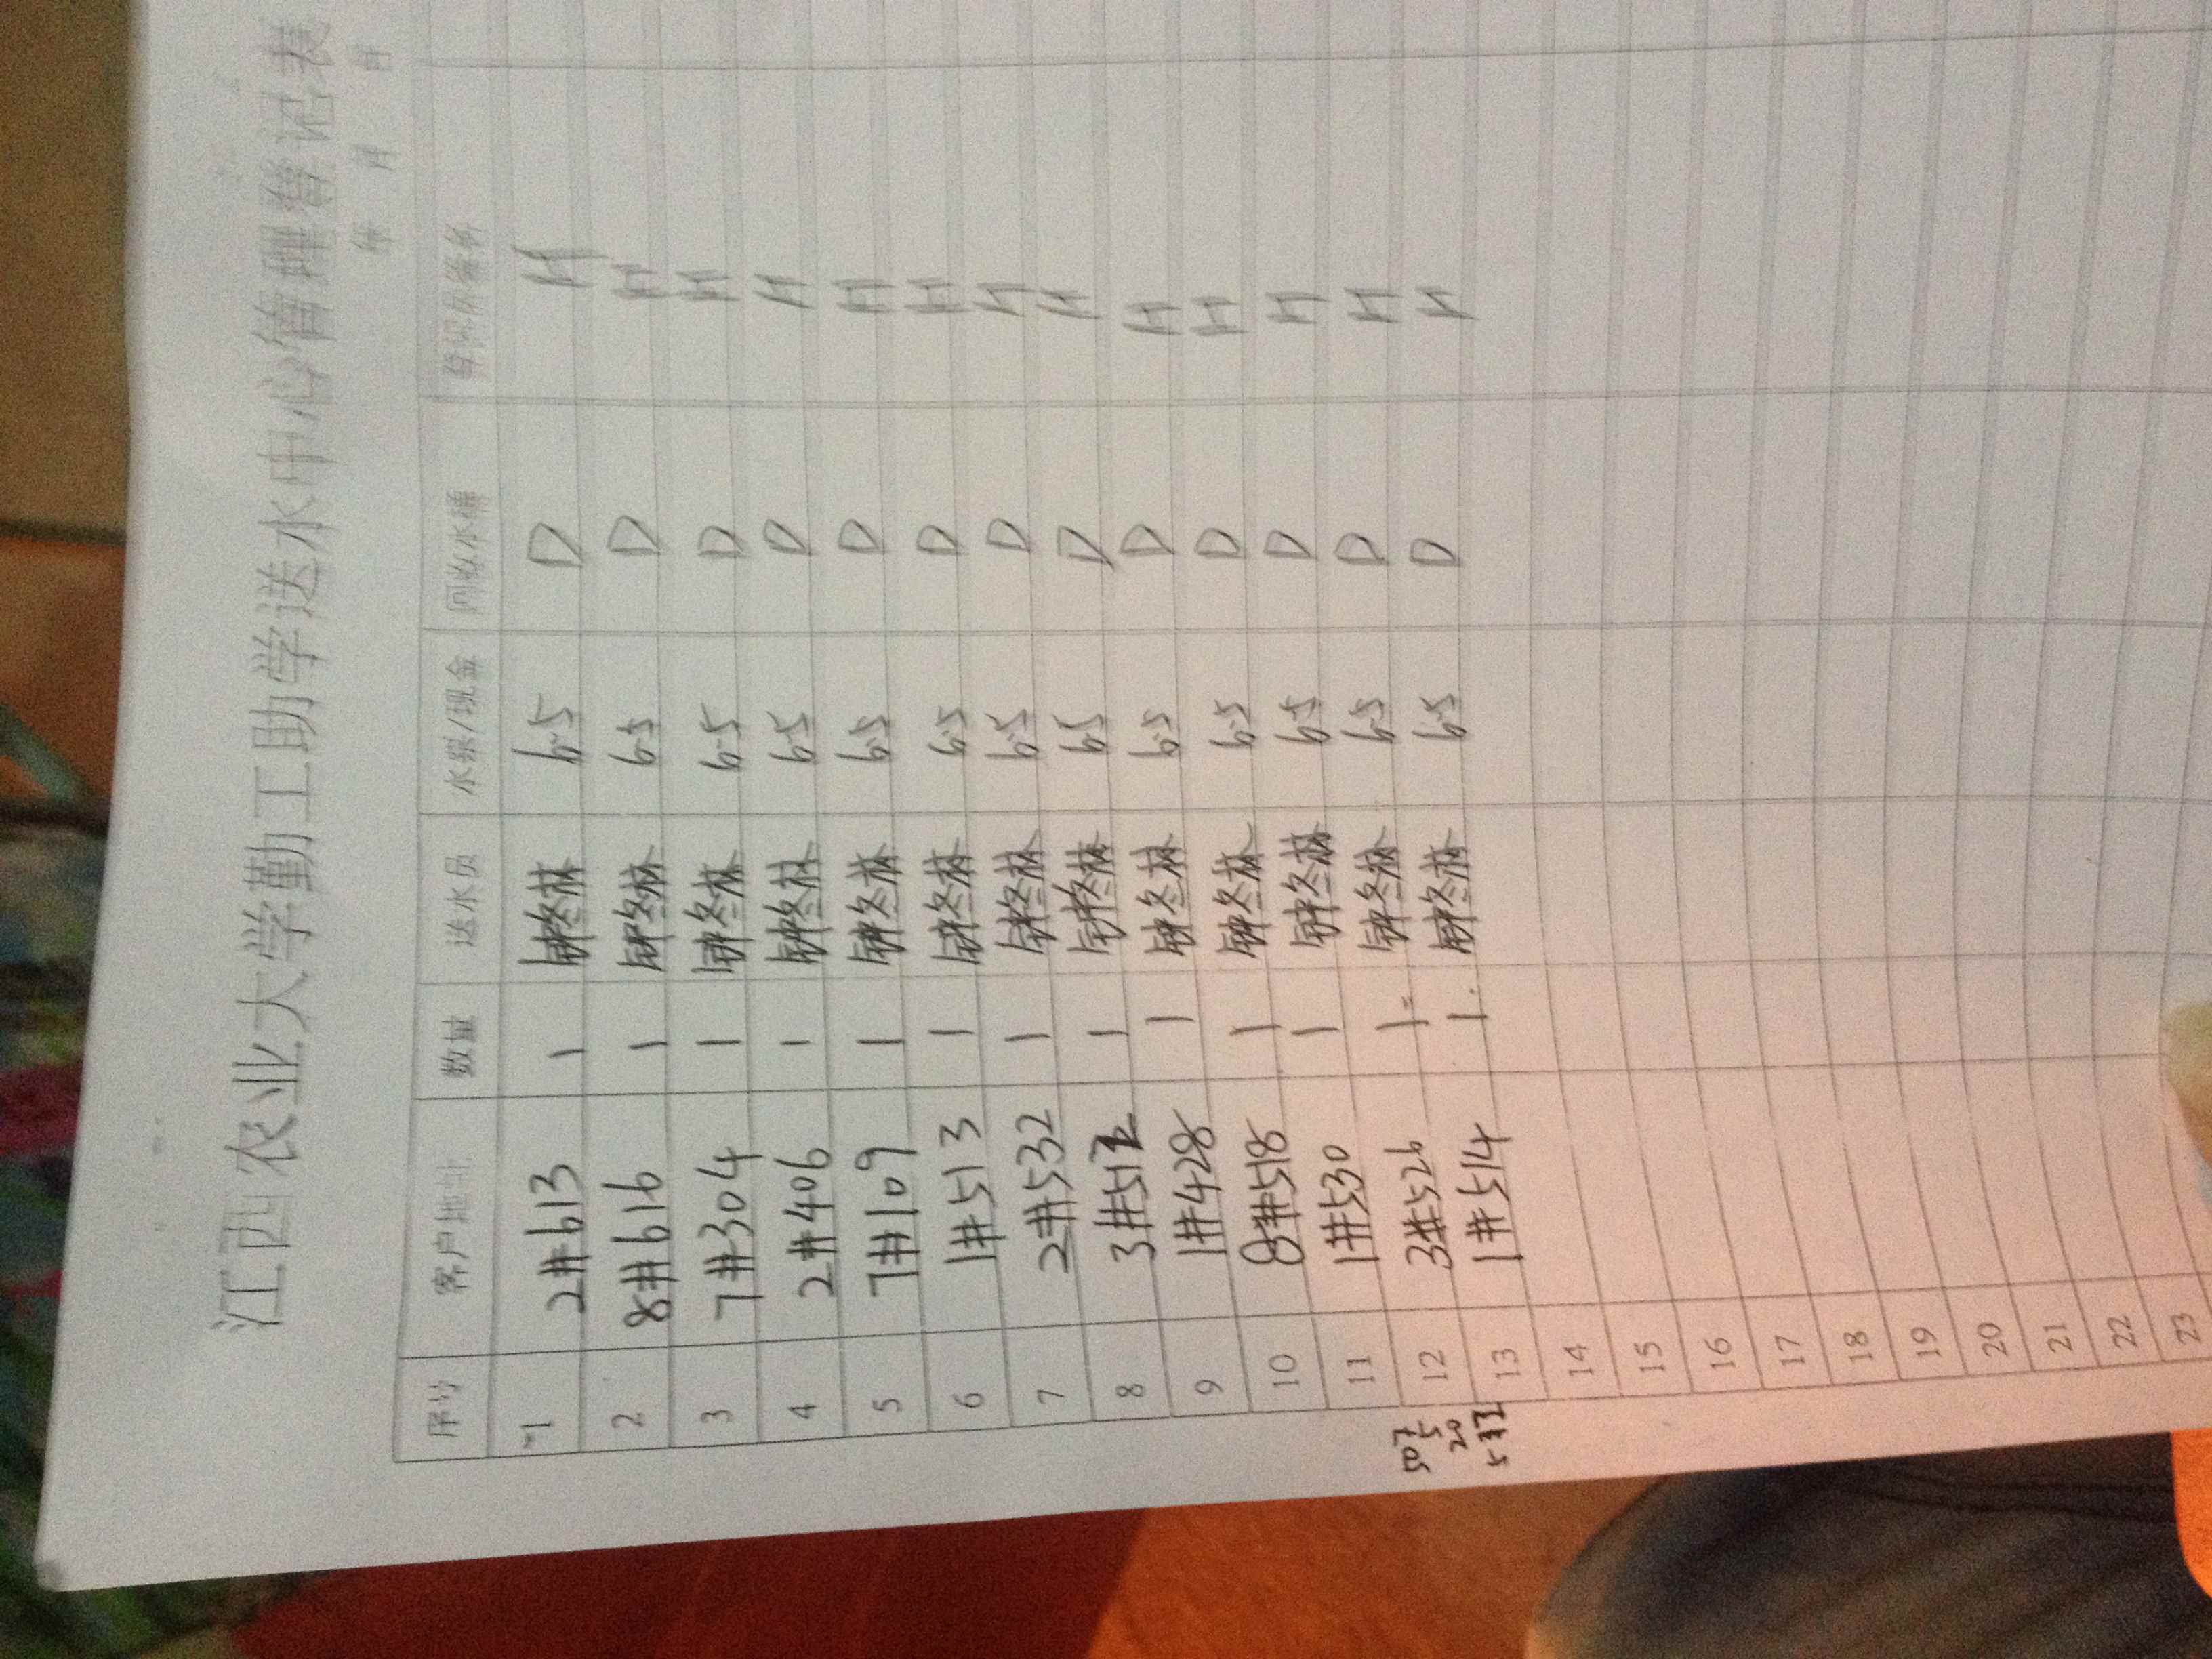 江西农业大学勤工助学送水中心管理登记表
年 月 日
序号 客户地址 数量 送水员 水票/现金 回收水桶 登记员签名
1 2#613 1 钟冬林 6.5 D H
2 8#616 1 钟冬林 6.5 D H
3 7#304 1 钟冬林 6.5 D H
4 2#406 1 钟冬林 6.5 D H
5 7#109 1 钟冬林 6.5 D H
6 1#513 1 钟冬林 6.5 D H
7 2#532 1 钟冬林 6.5 D H
8 3#512 1 钟冬林 6.5 D H
9 1#428 1 钟冬林 6.5 D H
10 8#518 1 钟冬林 6.5 D H
11 1#530 1 钟冬林 6.5 D H
507
5
20
12 3#526 1 钟冬林 6.5 D H
13 1#514 1 钟冬林 6.5 D H
14
15
16
17
18
19
20
21
22
23